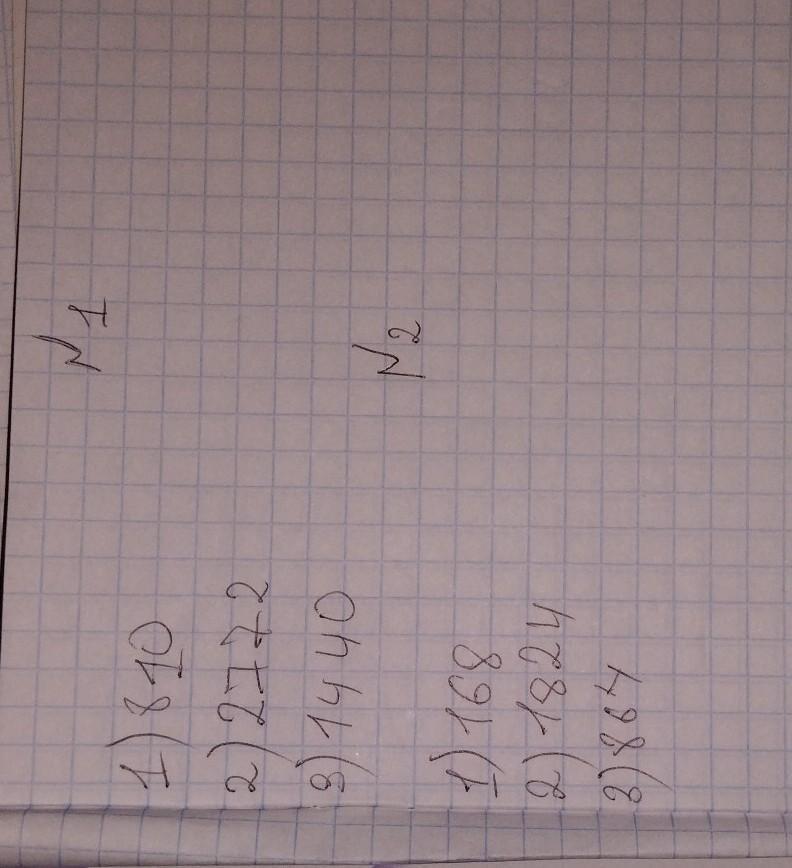 N1
1) 810
2) 2772
3) 1440
N2
1) 168
2) 1824
3) 864